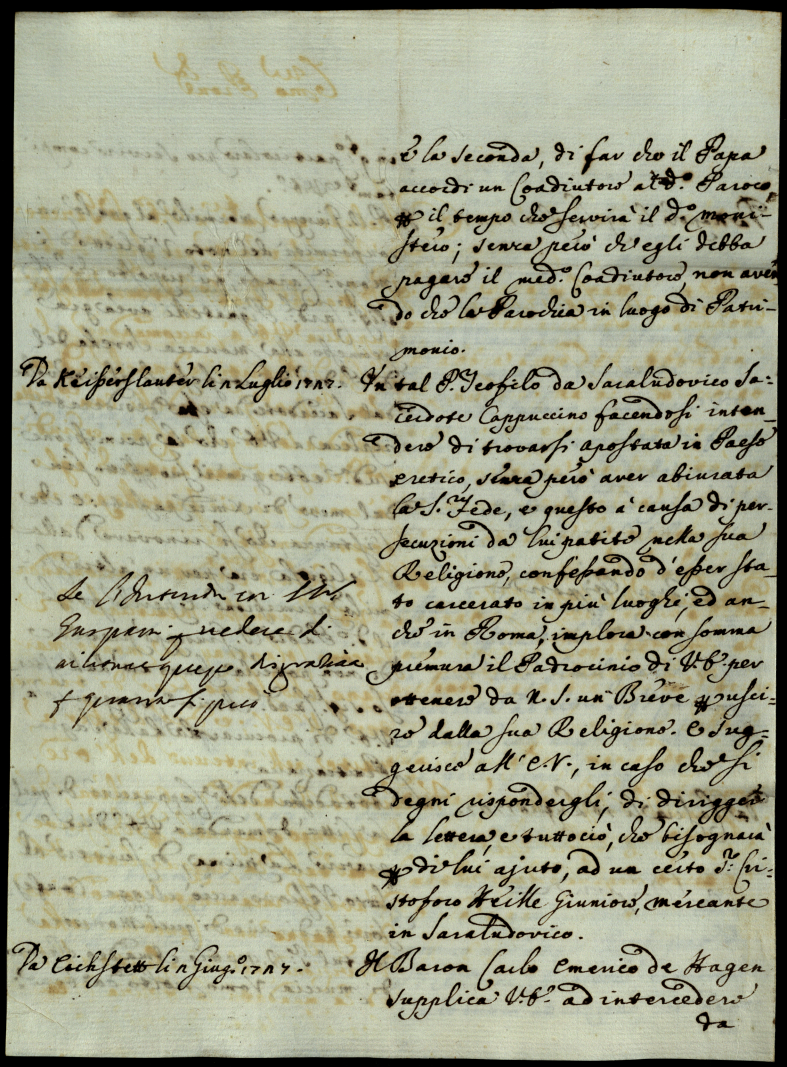 È la seconda, di far che il Papa
accordi un Coadiutore al d.º Paroco,
il tempo che servirà il d.º moni-
stero; senza però ch'egli debba
pagare il med.º Coadiutore, non aven
do che la Parochia in luogo di Patri-
monio.
Da Keißerslauter li Luglio
Un tal P. Teofilo da Saraludovico Sa-
cerdote Cappuccino facendosi inten-
dere di trovarsi apostata in Paese
eretico, senza però aver abiurata
la S. Fede, e questo à causa di per-
secuzioni da lui patite nella sua
Religione, confessando d'esser sta-
to carcerato in più luoghi, ed an-
che in Roma, implora con somma
premura il Padrocinio di V.E. per
ottenere da N. S. un Breve usci-
re dalla sua Religione. E sug-
gerisce all' E.V., in caso che si
degni rispondergli, di diriggere
la lettera, e tuttociò, che bisognarà
di lui ajuto, ad un certo S.r Cri-
stoforo Heille Giuniore, mercante
in Saraludovico.
Da Eichstett li Giug.º
Il Baron Carlo Emerico de Hagen
supplica V.E. ad intercedere
da